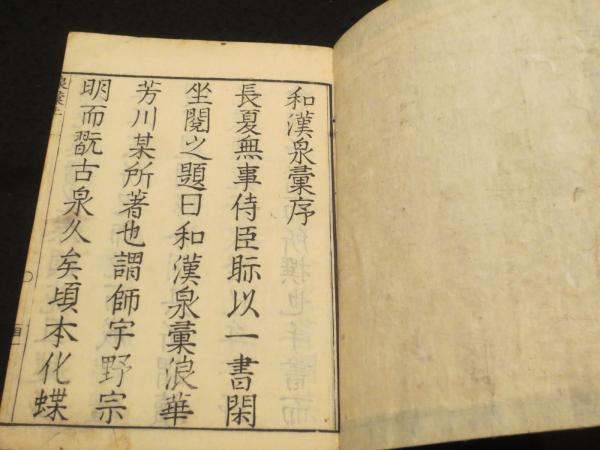 和漢泉彙序
長夏無事侍臣眎以一書閑
坐閲之題曰和漢泉彙浪華
芳川某所著也謂師宇野宗
明而翫古泉久矣頃本化蝶